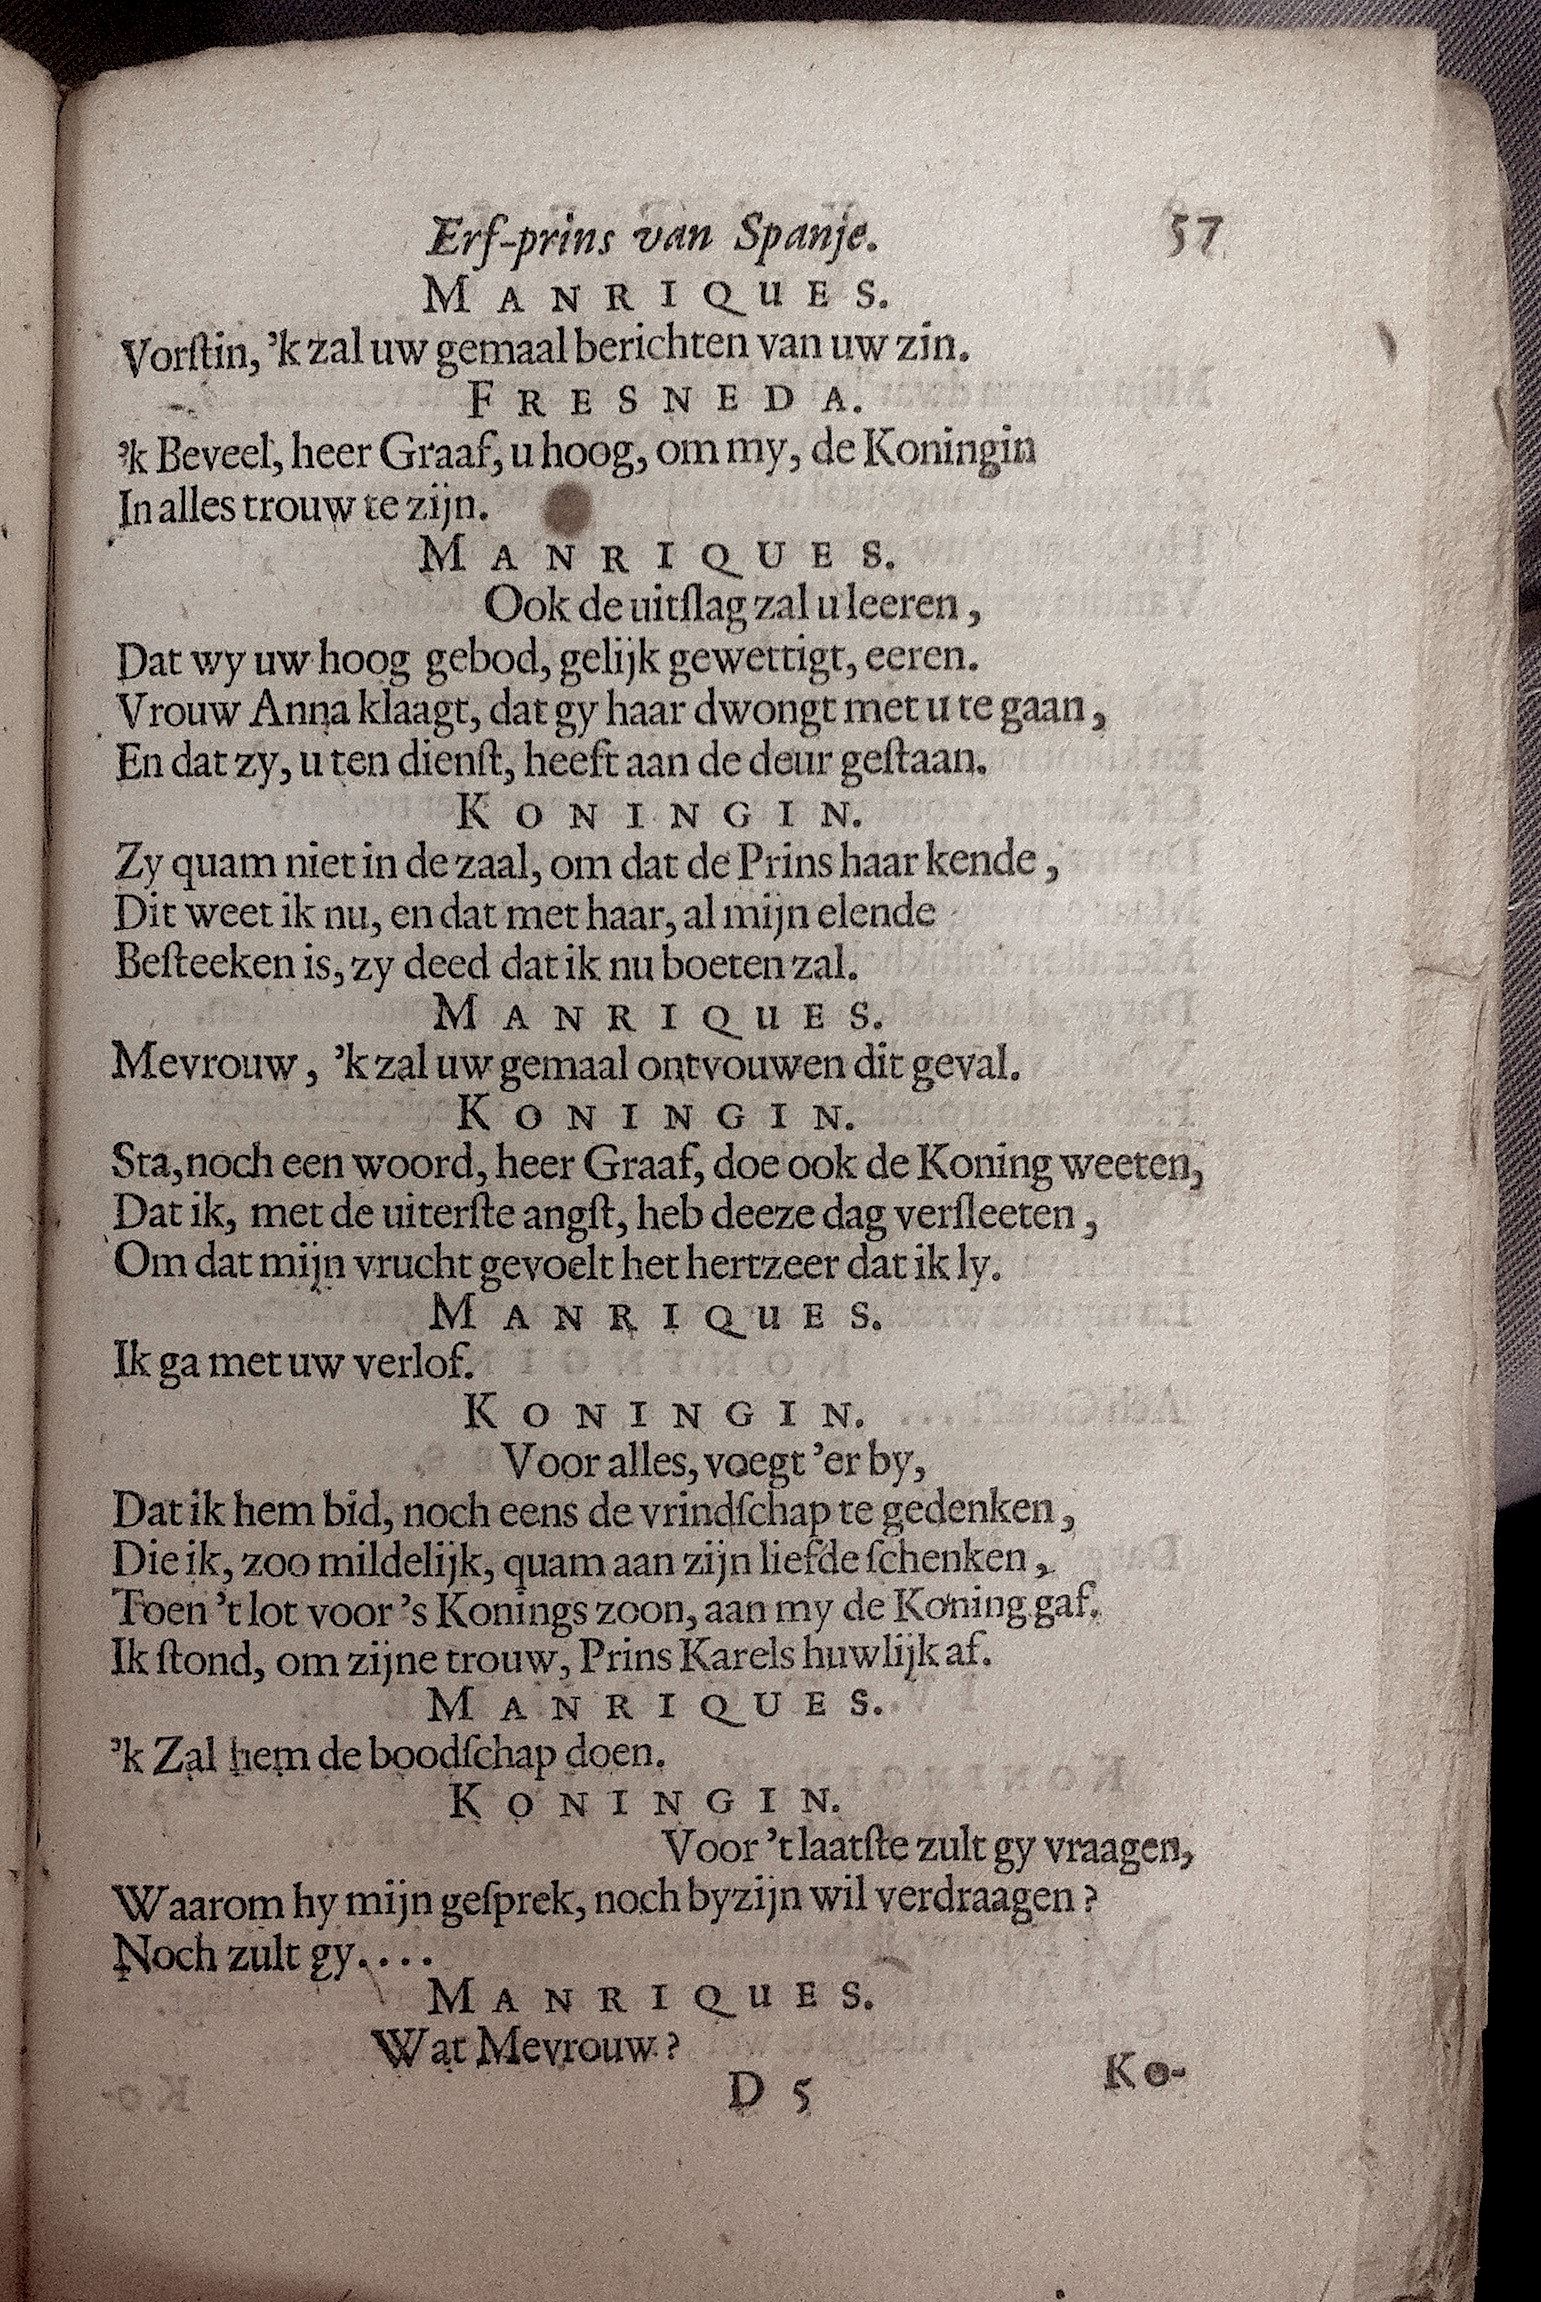 Erf-prins van Spanje. 57
MANRIQUES.
Vorſtin, 'k zal uw gemaal berichten van uw zin.
FRESNEDA.
'k Beveel, heer Graaf, u hoog, om my, de Koningin
In alles trouw te zijn.
MANRIQUES.
Ook de uitſlag zal u leeren,
Dat wy uw hoog gebod, gelijk gewettigt, eeren.
Vrouw Anna klaagt, dat gy haar dwongt met u te gaan,
En dat zy, u ten dienſt, heeft aan de deur geſtaan.
KONINGIN.
Zy quam niet in de zaal, om dat de Prins haar kende,
Dit weet ik nu, en dat met haar, al mijn elende
Beſteeken is, zy deed dat ik nu boeten zal.
MANRIQUES.
Mevrouw, 'k zal uw gemaal ontvouwen dit geval.
KONINGIN.
Sta, noch een woord, heer Graaf, doe ook de Koning weeten,
Dat ik, met de uiterſte angſt, heb deeze dag verſleeten,
Om dat mijn vrucht gevoelt het hertzeer dat ik ly.
MANRIQUES.
Ik ga met uw verlof.
KONINGIN.
Voor alles, voegt 'er by,
Dat ik hem bid, noch eens de vrindſchap te gedenken,
Die ik, zoo mildelijk, quam aan zijn liefde ſchenken,
Toen 't lot voor 's Konings zoon, aan my de Koning gaf.
Ik ſtond, om zijne trouw, Prins Karels huwlijk af.
MANRIQUES.
'k Zal hem de boodſchap doen.
KONINGIN.
Voor 't laatſte zult gy vraagen,
Waarom hy mijn geſprek, noch byzijn wil verdraagen?
Noch zult gy....
MANRIQUES.
Wat Mevrouw?
D 5 Ko-